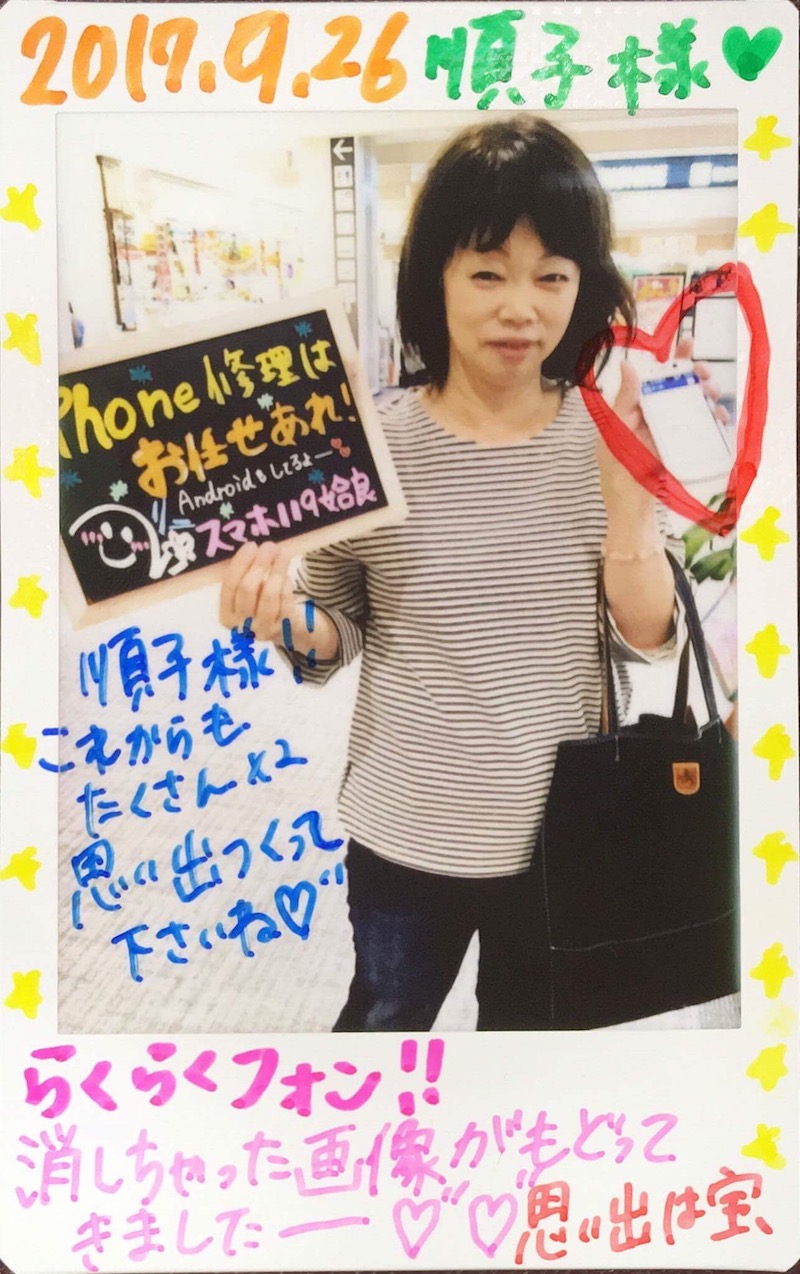 2017.9.26 順子様♡
iPhone修理は
お任せあれ!
Androidもしてるよー♡
スマホ119姶良
順子様!!
これからも
たくさん×2
思い出つくって
下さいね♡
らくらくフォン!!
消しちゃった画像がもどって
きましたー♡♡思い出は宝